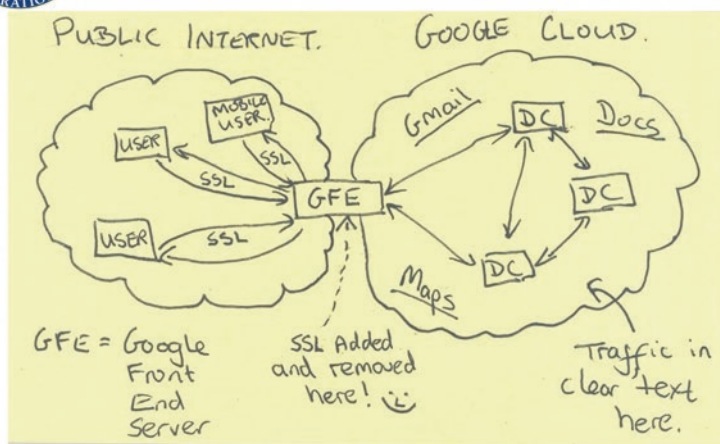 RATIO
PUBLIC INTERNET.
GOOGLE CLOUD.
MOBILE
USER.
USER
SSL
SSL
USER
SSL
GFE
Gmail
DC
Docs
DC
DC
Maps
GFE = Google
Front
End
Server
SSL Added
and removed
here!
Traffic in
clear text
here.